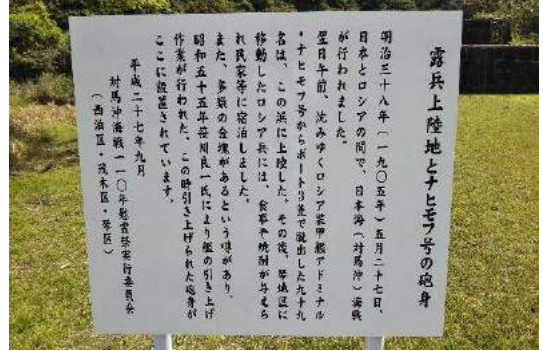 露兵上陸地とナヒモフ号の砲身
明治三十八年(一九〇五年)五月二十七日、
日本とロシアの間で、日本海(対馬沖)海戦
が行われました。
翌日午前、沈みゆくロシア装甲艦アドミナル
・ナヒモフ号からボート3隻で脱出した九十九
名は、この浜に上陸した。その後、琴地区に
移動したロシア兵には、食事や焼酎が与えら
れ民家等に宿泊しました。
また、多額の金塊があるという噂があり、
昭和五十五年笹川良一氏により艦の引き上げ
作業が行われた。この時引き上げられた砲身が
ここに設置されています。
平成二十七年九月
対馬沖海戦一一〇年慰霊祭実行委員会
(西泊区・茂木区・琴区)